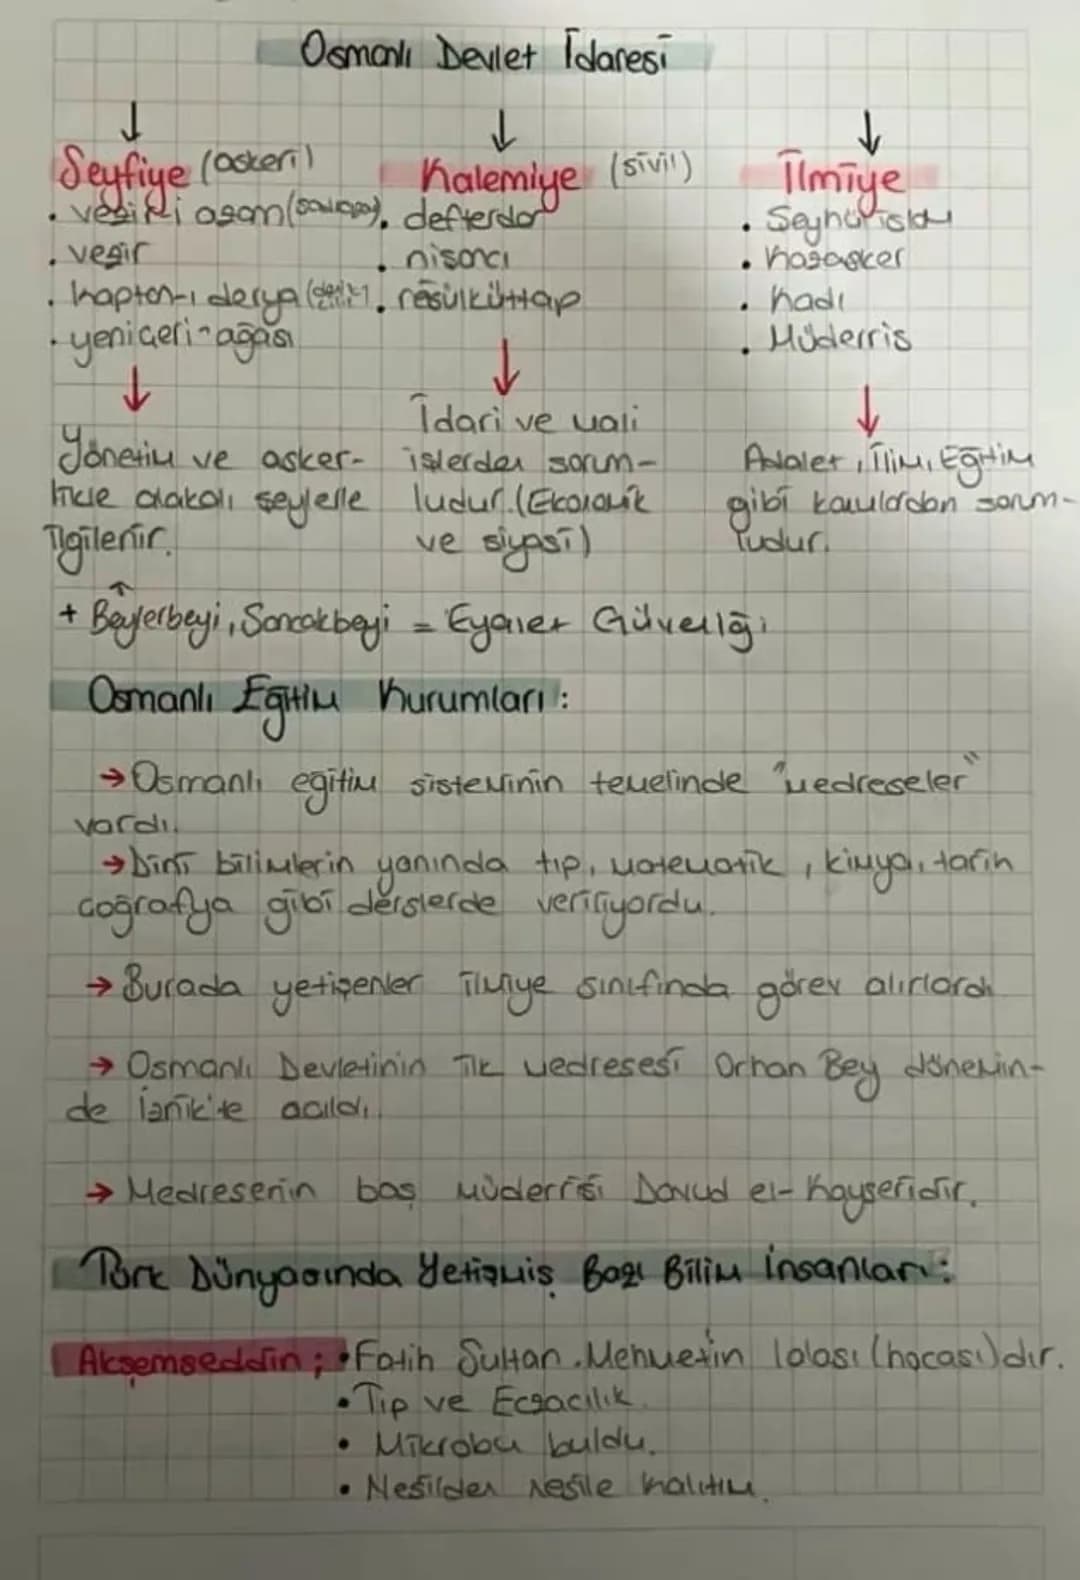 Osmanlı Devlet İdaresi
Seyfiye (askeri)
• vezir-i azam (sadrazam)
• vezir
• kaptan-ı derya
• yeniçeri-ağası
Yönetim ve asker-
likle alakalı şeylerle
ilgilenir.
Kalemiye (sivil)
• defterdar
• nisancı
• resülküttap
İdari ve mali
işlerden sorum-
ludur. (Ekonomik
ve siyasi)
İlmiye
• Şeyhülislam
• kazasker
• kadı
• Müderris
Adalet, İlim, Eğitim
gibi konulardan sorum-
ludur.
+ Beylerbeyi, Sancakbeyi = Eyalet Güvenliği
Osmanlı Eğitim Kurumları:
→ Osmanlı eğitim sisteminin temelinde "medreseler"
vardı.
→ Dini bilimlerin yanında tıp, matematik, kimya, tarih
coğrafya gibi derslerde veriliyordu.
→ Burada yetişenler ilmiye sınıfında görev alırlardı
→ Osmanlı Devletinin ilk medresesi Orhan Bey dönemin-
de İznik'te açıldı.
→ Medresenin baş müderrisi Davud el-Kayseridir.
Türk Dünyasında Yetişmiş Bazı Bilim İnsanları:
Akşemseddin; • Fatih Sultan Mehmet'in lalası (hocası)dır.
• Tıp ve Eczacılık.
• Mikrobu buldu.
• Nesilden nesile kalıtım.